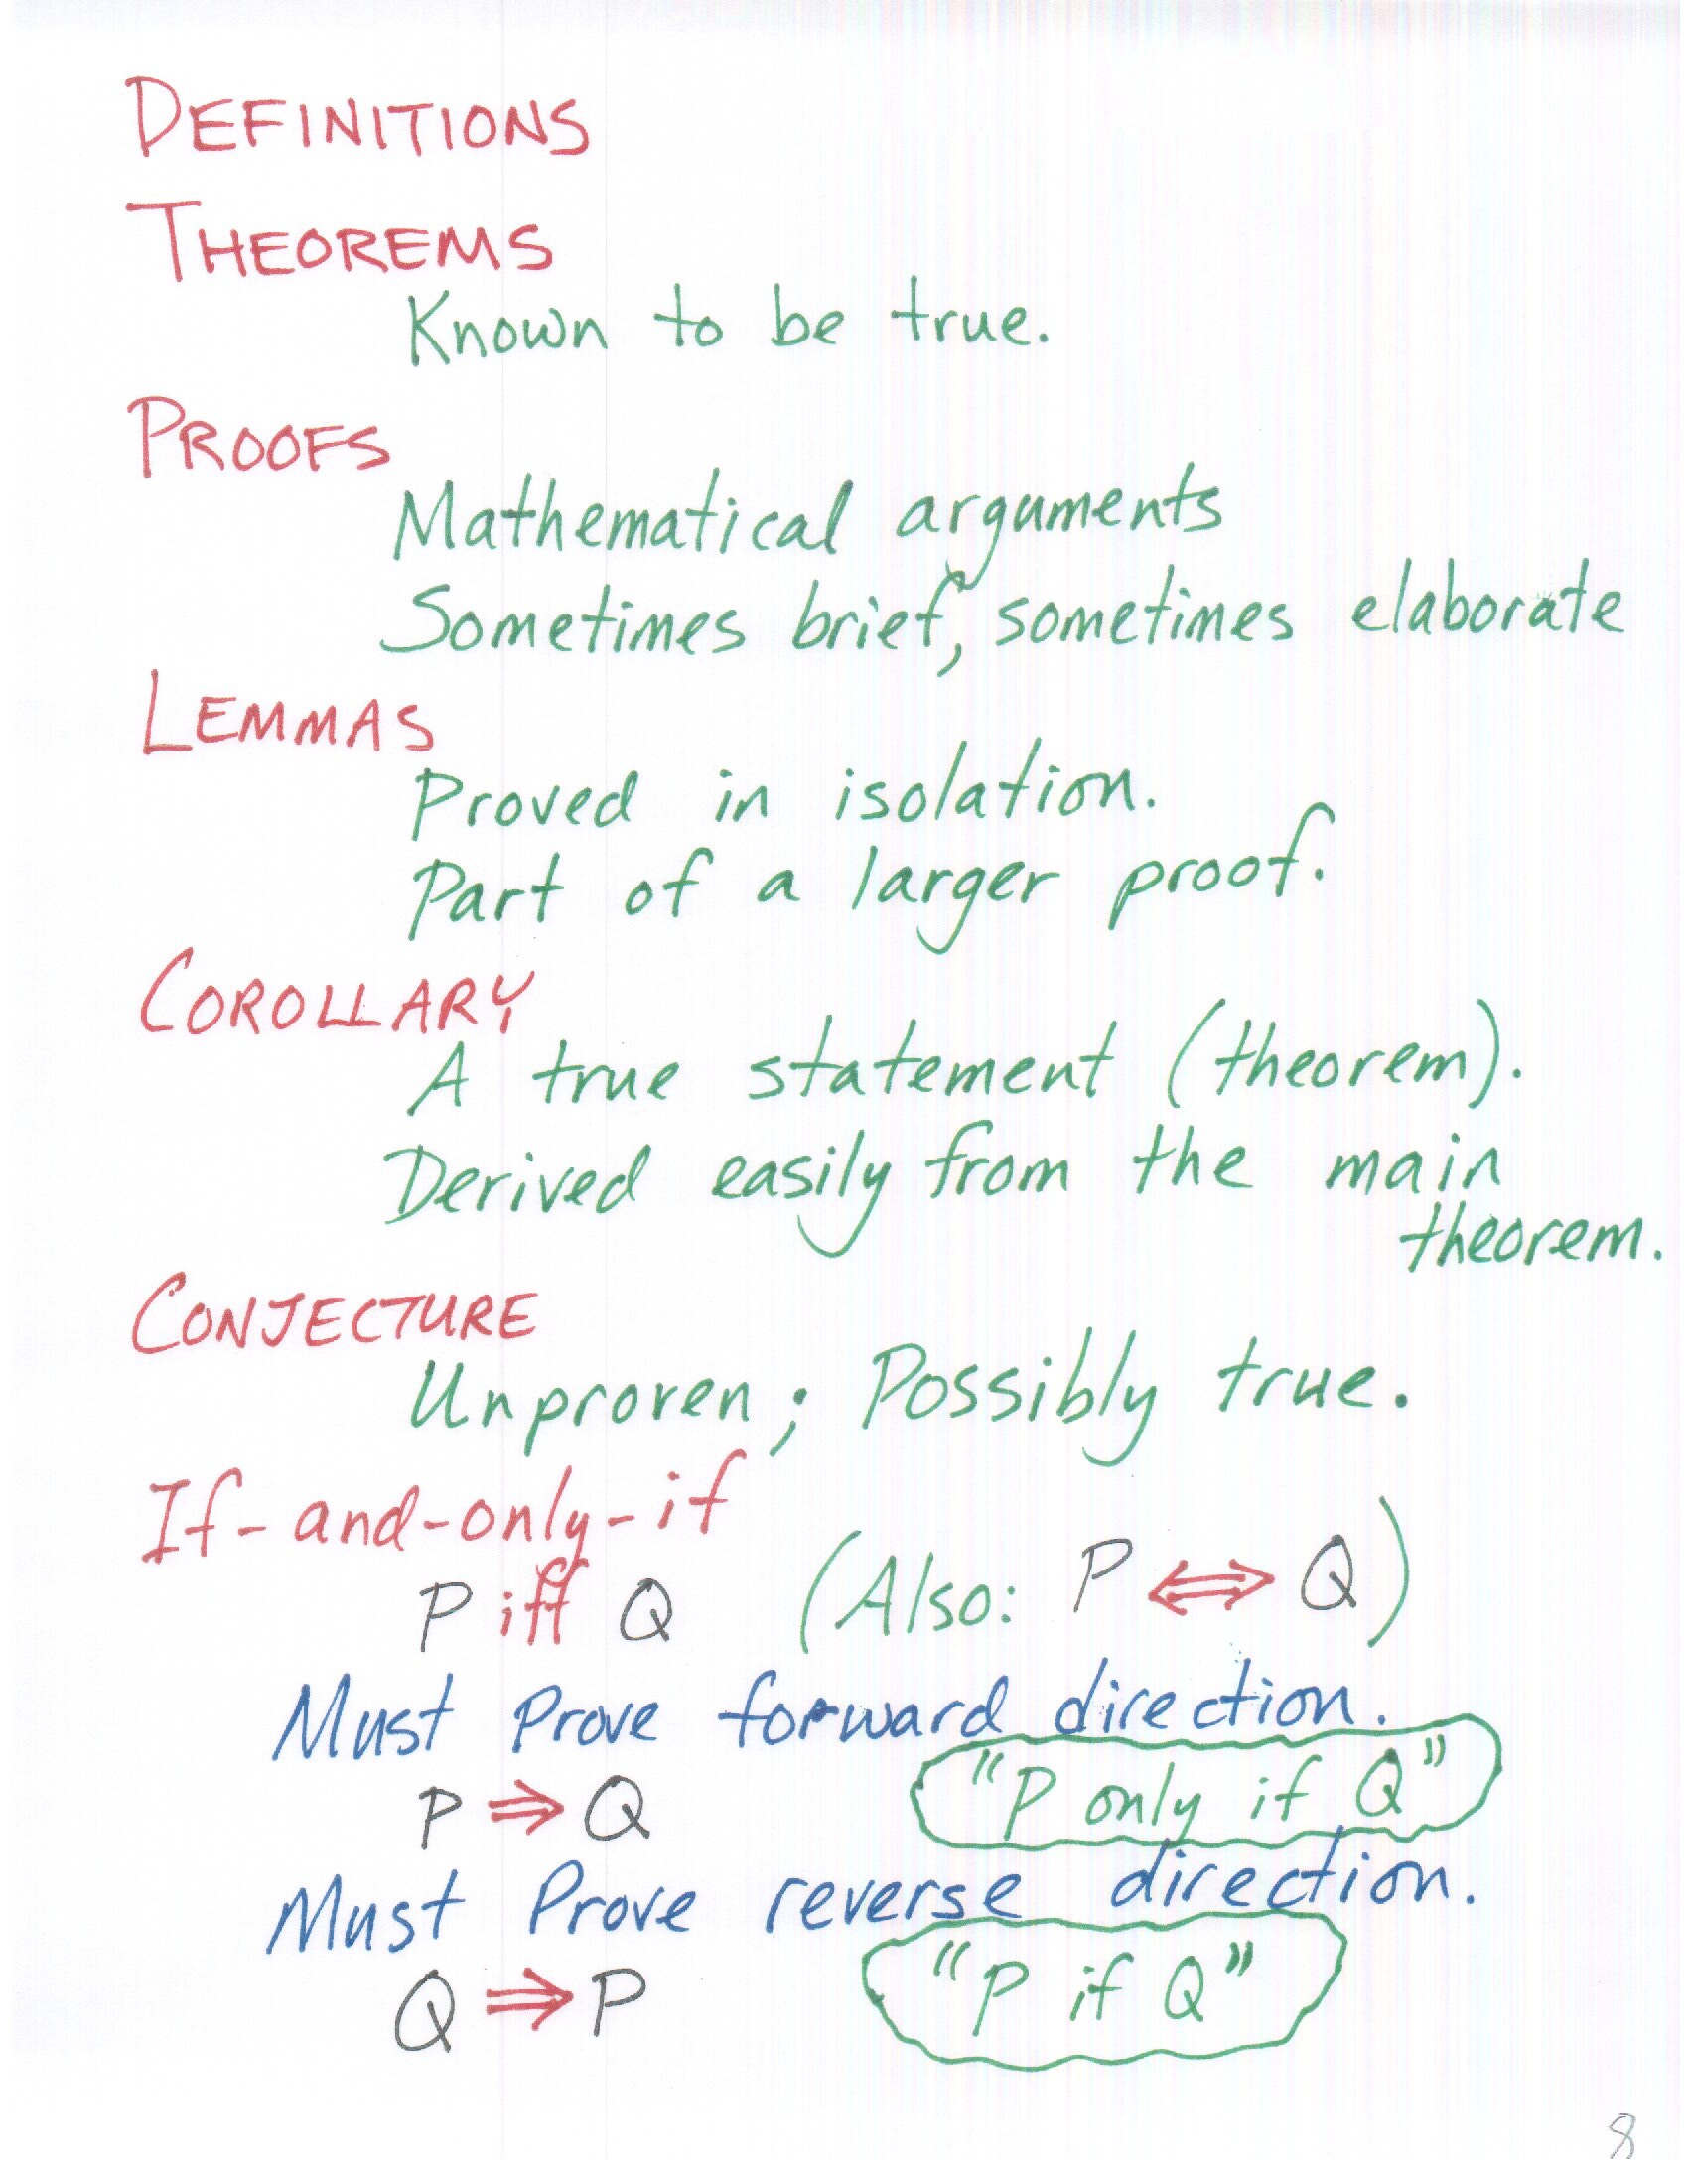 DEFINITIONS
THEOREMS
Known to be true.
PROOFS
Mathematical arguments
Sometimes brief, sometimes elaborate
LEMMAS
Proved in isolation.
Part of a larger proof.
COROLLARY
A true statement (theorem).
Derived easily from the main
theorem.
CONJECTURE
Unproven; Possibly true.
If-and-only-if
P iff Q (Also: P ⇔ Q)
Must Prove forward direction.
P ⇒ Q "P only if Q"
Must Prove reverse direction.
Q ⇒ P "P if Q"
8